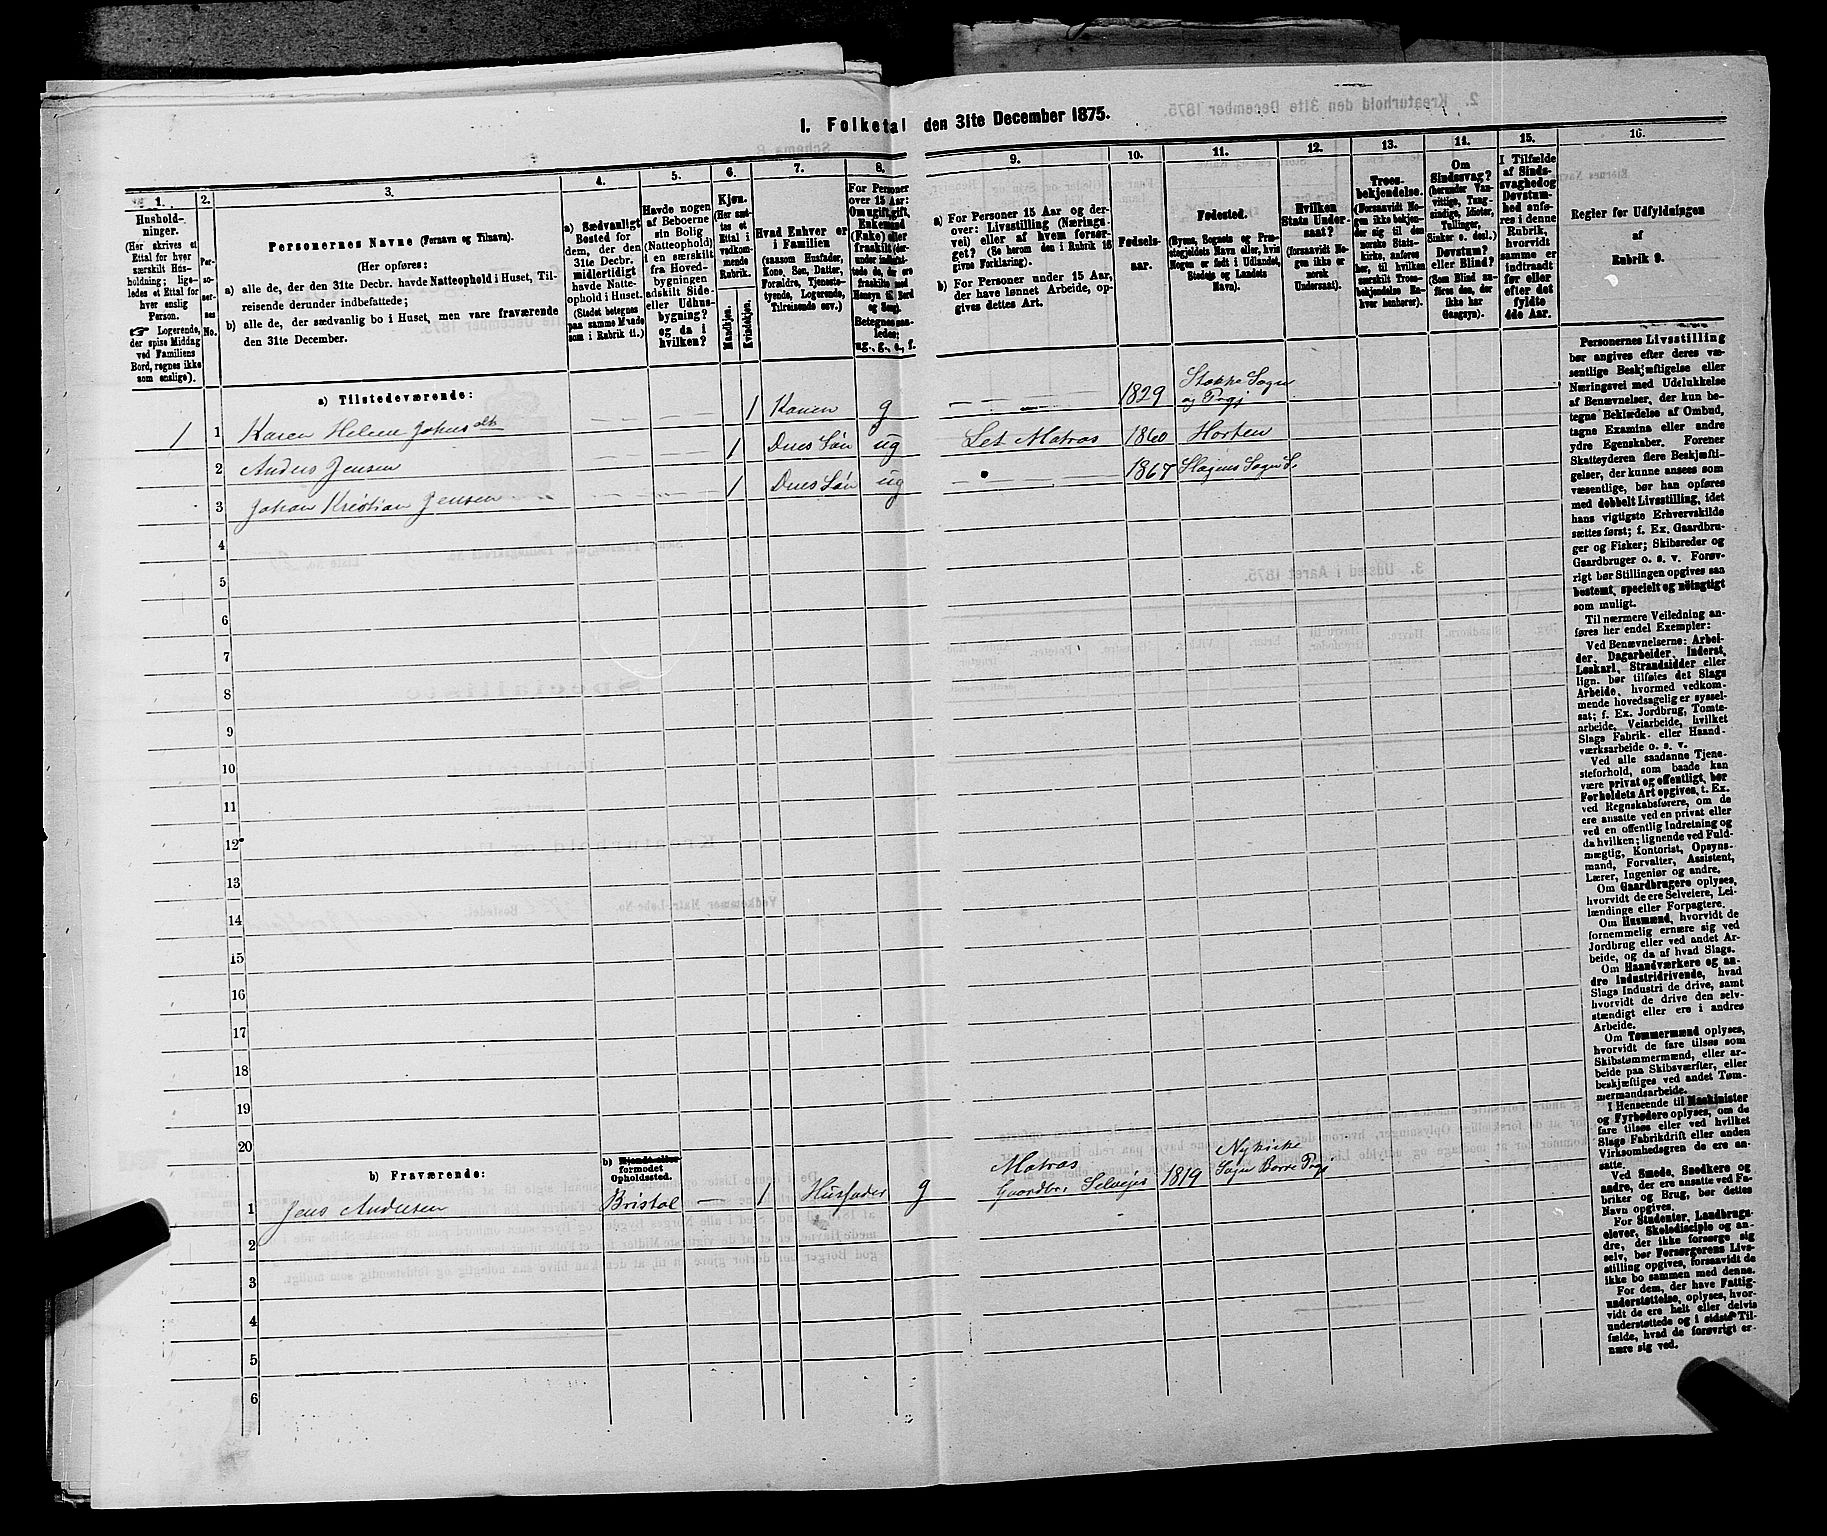 I. Folketal den 31te December 1875.
1. 2. 3. 4. 5. 6. 7. 8. 9. 10. 11. 12. 13. 14. 15. 16.
Hushold-
ninger.
(Her skrives et
Ettal for hver
særskilt Hus-
holdning; lige-
ledes et Ettal for
hver enslig
Person.
☞ Logerende,
der spise Middag
ved Familiens
Bord, regnes ikke
som enslige).
Per-
so-
ner-
nes
No.
Personernes Navne (Fornavn og Tilnavn).
(Her opføres:
a) alle de, der den 31te Decbr. havde Natteophold i Huset, Til-
reisende derunder indbefattede;
b) alle de, der sædvanlig bo i Huset, men vare fraværende
den 31te December.
a) Sædvanligt
Bosted for
dem, der den
31te Decbr.
midlertidigt
havde Natte-
ophold i Huset.
(Stedet betegnes
paa samme Maade
som i Rubrik 11.)
Havde nogen
af Beboerne
sin Bolig
(Natteophold)
i en særskilt
fra Hoved-
bygningen
adskilt Side-
eller Udhus-
bygning?
og da i
hvilken?
Kjøn.
(Her sæt-
tes et
Ettal i
vedkom-
mende
Rubrik.
Mandkjøn.
Kvindekjøn.
Hvad Enhver er
i Familien
(saasom Husfader,
Kone, Søn, Datter,
Forældre, Tjeneste-
tyende, Logerende,
Tilreisende osv.)
For Personer
over 15 Aar:
Om ugift, gift,
Enkemand
(Enke) eller
fraskilt
Betegnes saa-
ledes:
ug., g., e., f.
a) For Personer 15 Aar og der-
over: Livsstilling (Nærings-
vei) eller af hvem forsør-
get? (Se herom den i Rubrik 16
givne Forklaring).
b) For Personer under 15 Aar,
der have lønnet Arbeide, op-
gives dettes Art.
Fødsels-
aar.
Fødested.
(Byens, Sognets og Præ-
stegjeldets Navn eller, hvis
Nogen er født i Udlandet,
Stedets og Landets
Navn).
Hvilken
Stats Under-
saat?
(forsaavidt No-
gen ikke er
norsk
Undersaat).
Troes-
bekjendelse.
(Forsaavidt No-
gen ikke bekjen-
der sig til den
norske Stats-
kirke, anføres
her, til hvilken
særskilt Tros-
bekjendelse En-
hver henhører).
Om
Sindssvag?
(herunder Van-
vittige, Tung-
sindige, Idioter,
Tullinger,
Sinker o. desl.)
Døvstum?
eller Blind?
(Som Blind an-
føres den, der
ikke har
Gangsyn).
I Tilfælde
af Sinds-
svaghed og
Døvstum-
hed anfø-
res i denne
Rubrik,
hvorvidt
samme er
indtraadt
før eller
efter det
fyldte
4de Aar.
Regler for Udfyldningen
af
Rubrik 9.
a) Tilstedeværende:
1 1 Karen Helene Johnsdtr — — — — 1 Konen g — — — 1829 Stokke Sogn og Prgj
2 Anders Jensen — — — — 1 Deres Søn ug Let Matros 1860 Horten
3 Johan Kristian Jensen — — — — 1 Deres Søn ug — — — 1867 Slagens Sogn
4
5
6
7
8
9
10
11
12
13
14
15
16
17
18
19
20
b) Fraværende:
b) Kjendt eller
formodet
Opholdssted.
1 Jens Andersen Bristol — 1 Husfader g Matros Gaardbr. Selveier 1819 Nykirke Sogn Borre Prgj
2
3
4
5
6
Personernes Livsstilling
bør angives efter deres væ-
sentlige Beskjæftigelse eller
Næringsvei med Udelukkelse
af Benævnelser, der kun be-
tegne Beklædelse af Ombud,
tagne Examina eller andre
ydre Egenskaber. Forener
Skatteyderen flere Beskjæfti-
gelser, der kunne ansees som
væsentlige, bør han opføres
med dobbelt Livsstilling, idet
hans vigtigste Erhvervskilde
sættes først; f. Ex. Gaardbru-
ger og Fisker; Skibsreder og
Gaardbruger o. s. v. Forøv-
rigt bør Stillingen opgives saa
bestemt, specielt og nöiagtigt
som muligt.
Til nærmere Veiledning an-
føres her endel Exempler:
Ved Benævnelserne: Arbei-
der, Dagarbeider, Inderst,
Løskarl, Strandsidder eller
lign. bør tilføies det Slags
Arbeide, hvormed vedkom-
mende hovedsagelig er syssel-
sat; f. Ex. Jordbrug, Tomte-
arbeide, Veiarbeide, hvilket
Slags Fabrik- eller Haand-
værksarbeide o. s. v.
Ved alle saadanne Tjene-
steforhold, som baade kan
være privat og offentligt, bør
Forholdets Art opgives, t. Ex.
ved Regnskabsførere, om de
ere ansatte ved en privat eller
ved en offentlig Indretning og
da hvilken; lignende ved Fuld-
mægtig, Kontorist, Opsyns-
mand, Forvalter, Assistent,
Lærer, Ingeniør og andre.
Om Gaardbrugere oplyses,
hvorvidt de ere Selveiere, Lei-
lændinge eller Forpagtere.
Om Husmænd, hvorvidt de
fornemmelig ernære sig ved
Jordbrug eller ved andet Ar-
beide, og da af hvad Slags.
Om Haandværkere og an-
dre Industridrivende, hvad
Slags Industri de drive, samt
hvorvidt de drive den selv-
stændigt eller ere i andres
Arbeide.
Om Tømmermænd oplyses,
hvorvidt de fare tilsøs som
Skibstømmermænd, eller ar-
beide paa Skibsværfter, eller
beskjæftiges ved andet Tøm-
mermandsarbeide.
I Henseende til Maskinister
og Fyrbødere oplyses, om de
fare tilsøs eller ved hvilket
Slags Fabrikdrift eller anden
Virksomhedsgren de ere an-
satte.
Ved Smede, Snedkere og
andre, der ere ansatte ved Fa-
briker og Brug, bør dettes
Navn opgives.
For Studenter, Landbrugs-
elever, Skoledisciple og an-
dre, der ikke forsørge sig
selv, bør Forsørgerens Livs-
stilling opgives, forsaavidt de
ikke bo sammen med denne.
For dem, der have Fattig-
understøttelse, oplyses, hvor-
vidt de ere helt eller delvis
understøttede og i sidste Til-
fælde, hvad de forøvrigt er-
nære sig ved.